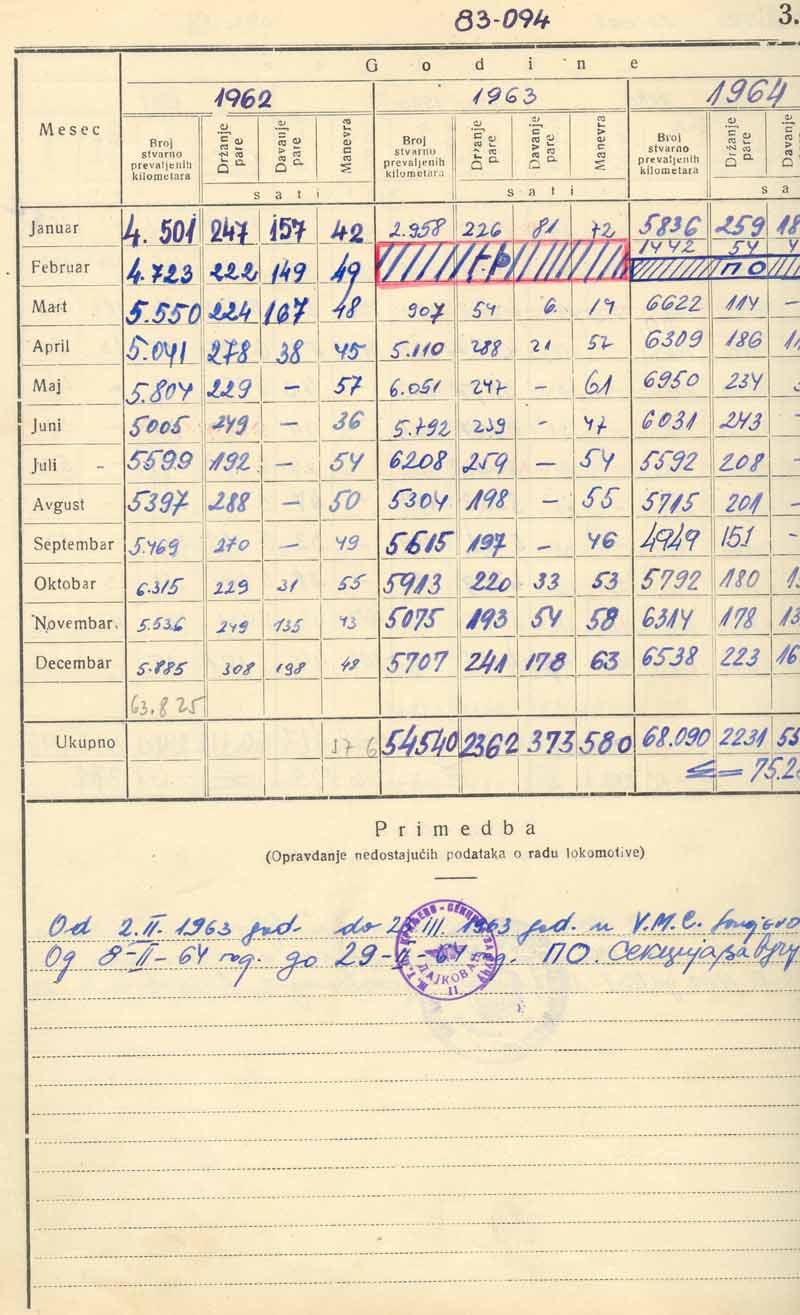 83-094
3.
Godine
Mesec 1962 1963 1964
Broj stvarno prevaljenih kilometara Držanje pare Davanje pare Manevra Broj stvarno prevaljenih kilometara Držanje pare Davanje pare Manevra Broj stvarno prevaljenih kilometara Držanje pare
sati sati sa
Januar 4.501 247 157 42 2.958 226 81 72 5836 259 18
Februar 4.723 222 149 49 1442 54 4
ПО
Mart 5.550 224 167 48 907 54 6. 19 6622 114 –
April 5.041 278 38 45 5.110 288 21 52 6309 186
Maj 5.804 229 – 57 6.051 247 – 61 6950 234
Juni 5005 249 – 36 5.792 239 - 47 6031 243 –
Juli - 5599 192 – 54 6208 259 – 54 5592 208 -
Avgust 5397 288 – 50 5304 198 – 55 5715 201 -
Septembar 5.469 270 – 49 5615 197 – 46 4949 151 -
Oktobar 6.315 229 31 55 5913 220 33 53 5792 180
Novembar. 5.536 249 135 43 5075 193 54 58 6314 178 13
Decembar 5.885 308 198 48 5707 241 178 63 6538 223 16
63.825
Ukupno 576 54540 2362 373 580 68.090 2231 55
= 75.2
Primedba
(Opravdanje nedostajućih podataka o radu lokomotive)
Od 2.II. 1963 god. do III. 1963 god. u V.M.C.
Од 8-II-64 год. до 29-II-64 ПО. Секција за вучу
ЛАЈКОВАЦ
II